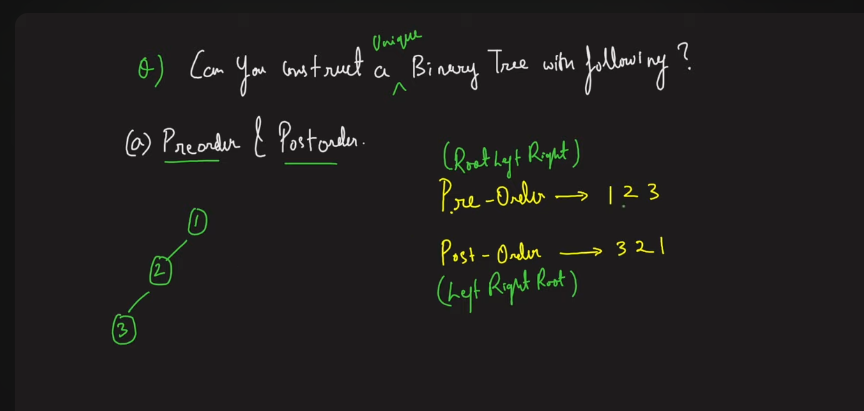 Q) Can you construct a Unique Binary Tree with following?
(a) Preorder & Postorder.
(Root Left Right)
Pre-Order → 1 2 3
Post-Order → 3 2 1
(Left Right Root)
1
2
3